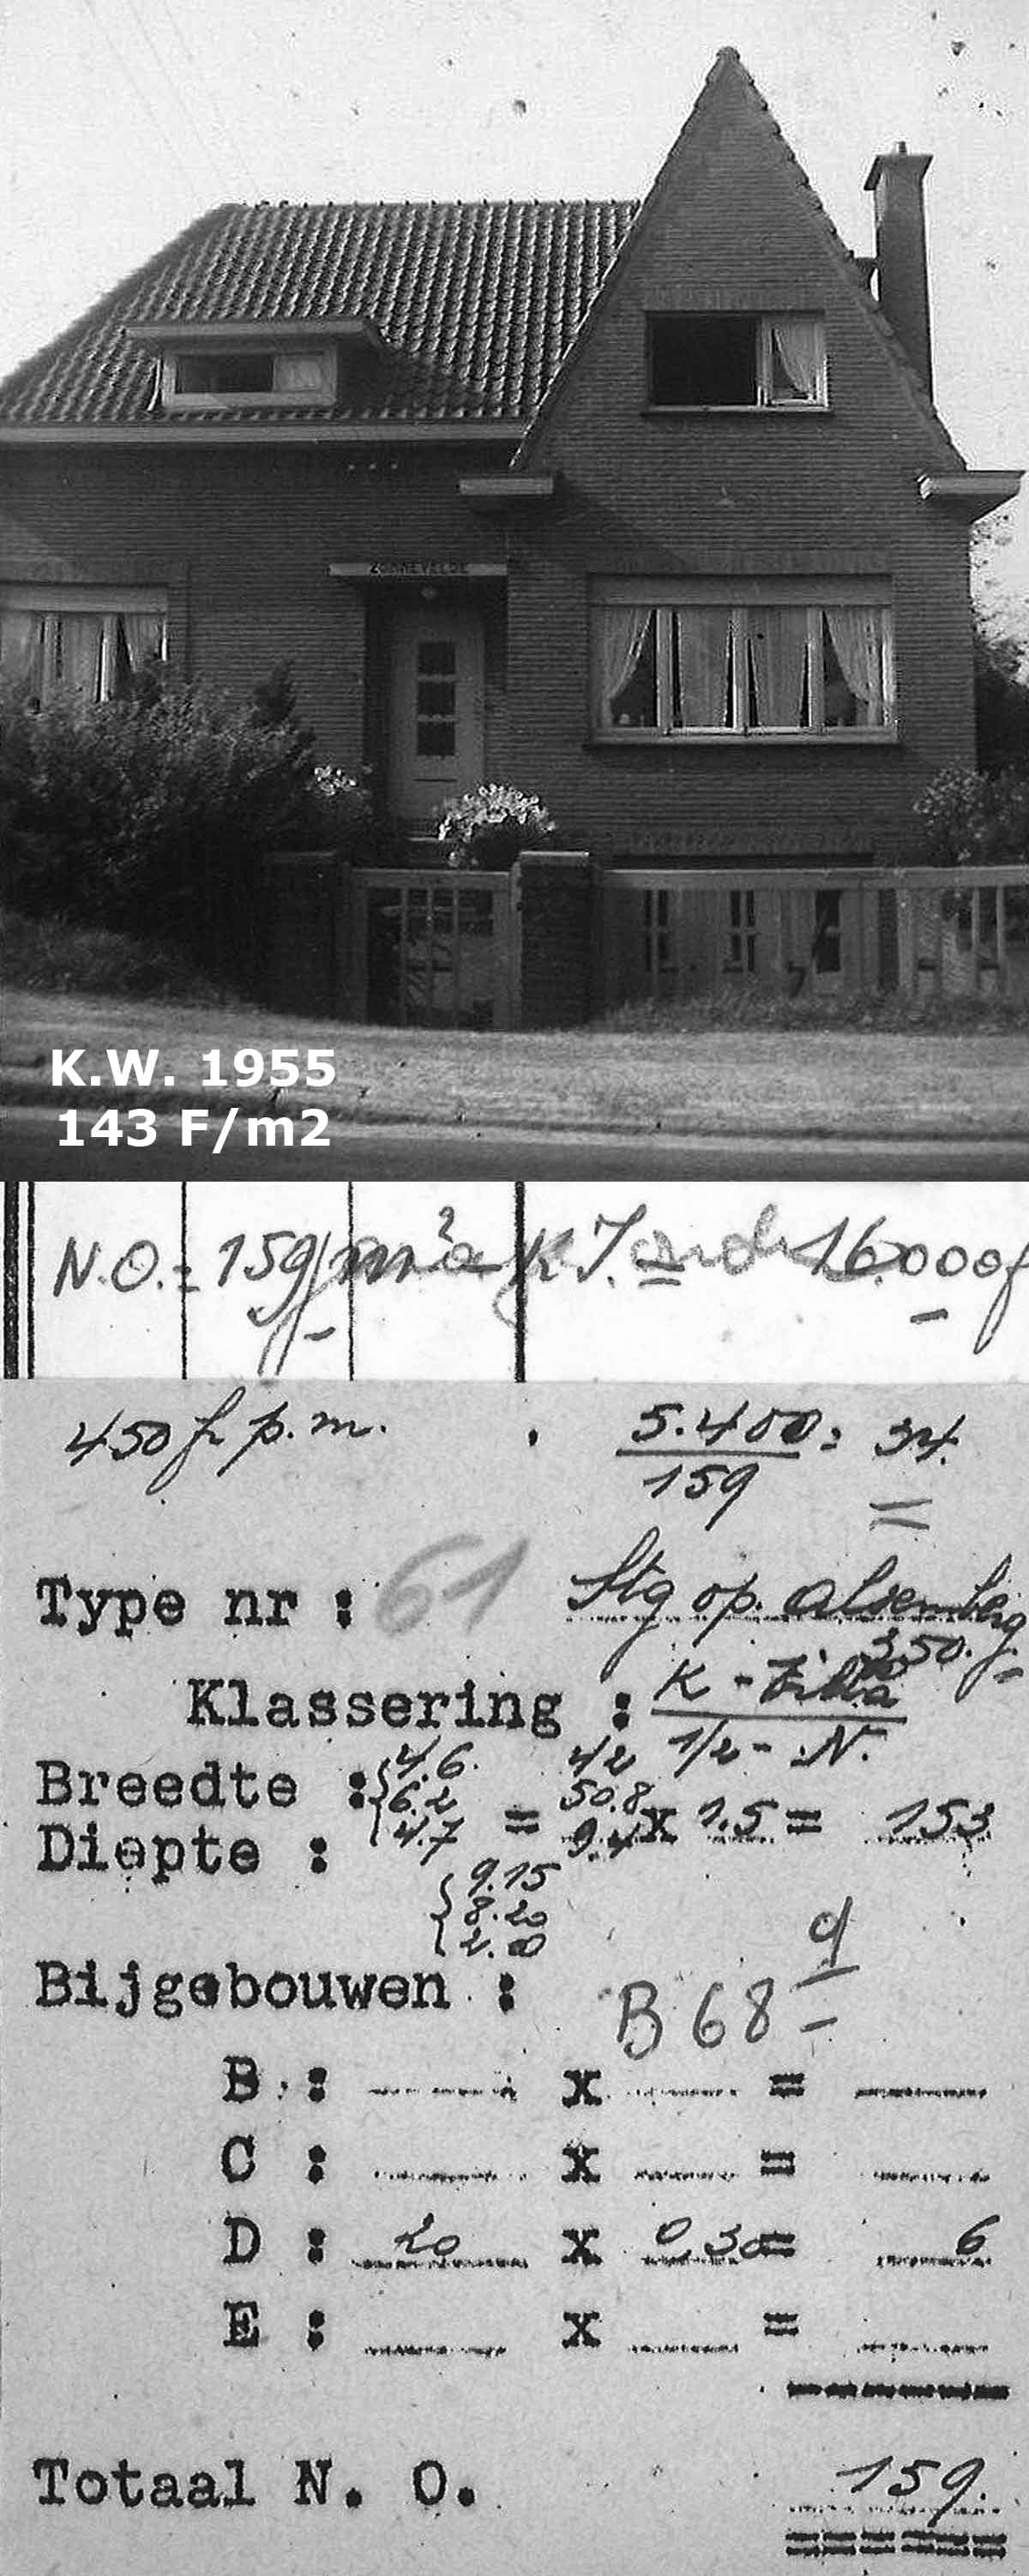 ZONNEVELDE
K.W. 1955
143 F/m2
N.O. = 159 m² K.I. 16.000 f
450 fr p.m. 5.400 = 34.
159
Type nr : 61 Stg op. Alsemberg
350. f.
Klassering : K - Villa
1/2 - N.
Breedte : 4.6. 42
6.2 50.8
Diepte : 4.7 = 9.4 x 1.5 = 153
9.15
8.20
2.00
Bijgebouwen : B 68
B : x =
C : x =
D : 20 x 0,30 = 6
E : x =
Totaal N. O. 159.